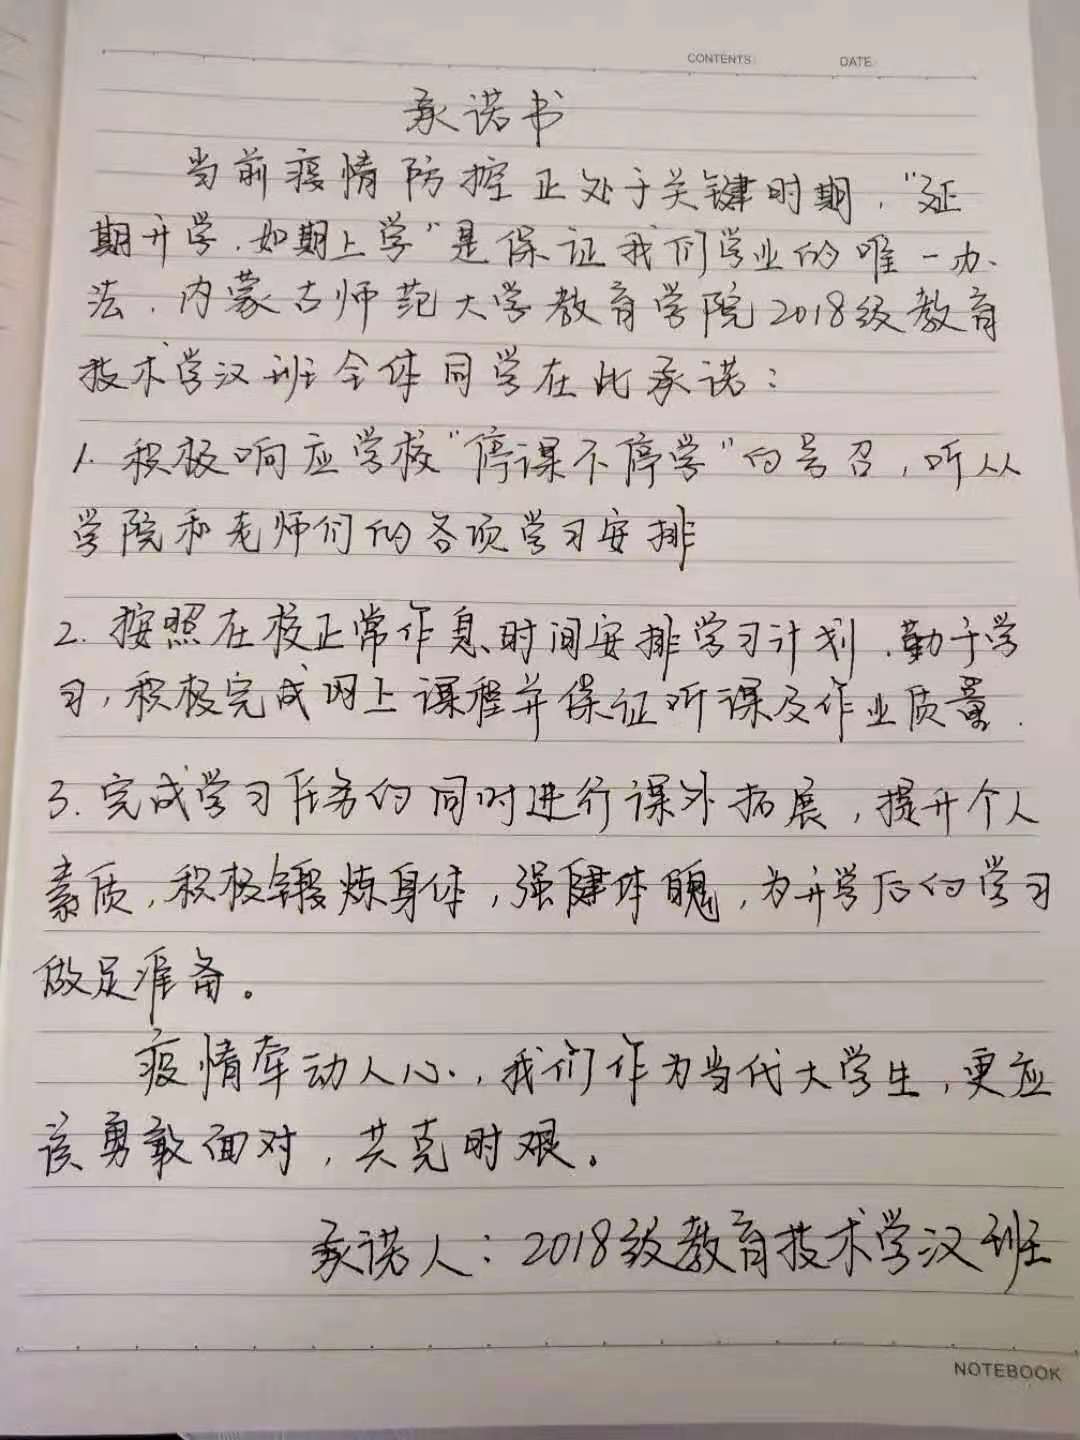 CONTENTS: DATE:
承诺书
当前疫情防控正处于关键时期，“延
期开学，如期上学”是保证我们学业的唯一办
法，内蒙古师范大学教育学院2018级教育
技术学汉班全体同学在此承诺：
1.积极响应学校“停课不停学”的号召，听从
学院和老师们的各项学习安排
2.按照在校正常作息时间安排学习计划，勤于学
习，积极完成网上课程并保证听课及作业质量.
3.完成学习任务的同时进行课外拓展，提升个人
素质，积极锻炼身体，强健体魄，为开学后的学习
做足准备。
疫情牵动人心，我们作为当代大学生，更应
该勇敢面对，共克时艰。
承诺人：2018级教育技术学汉班
NOTEBOOK